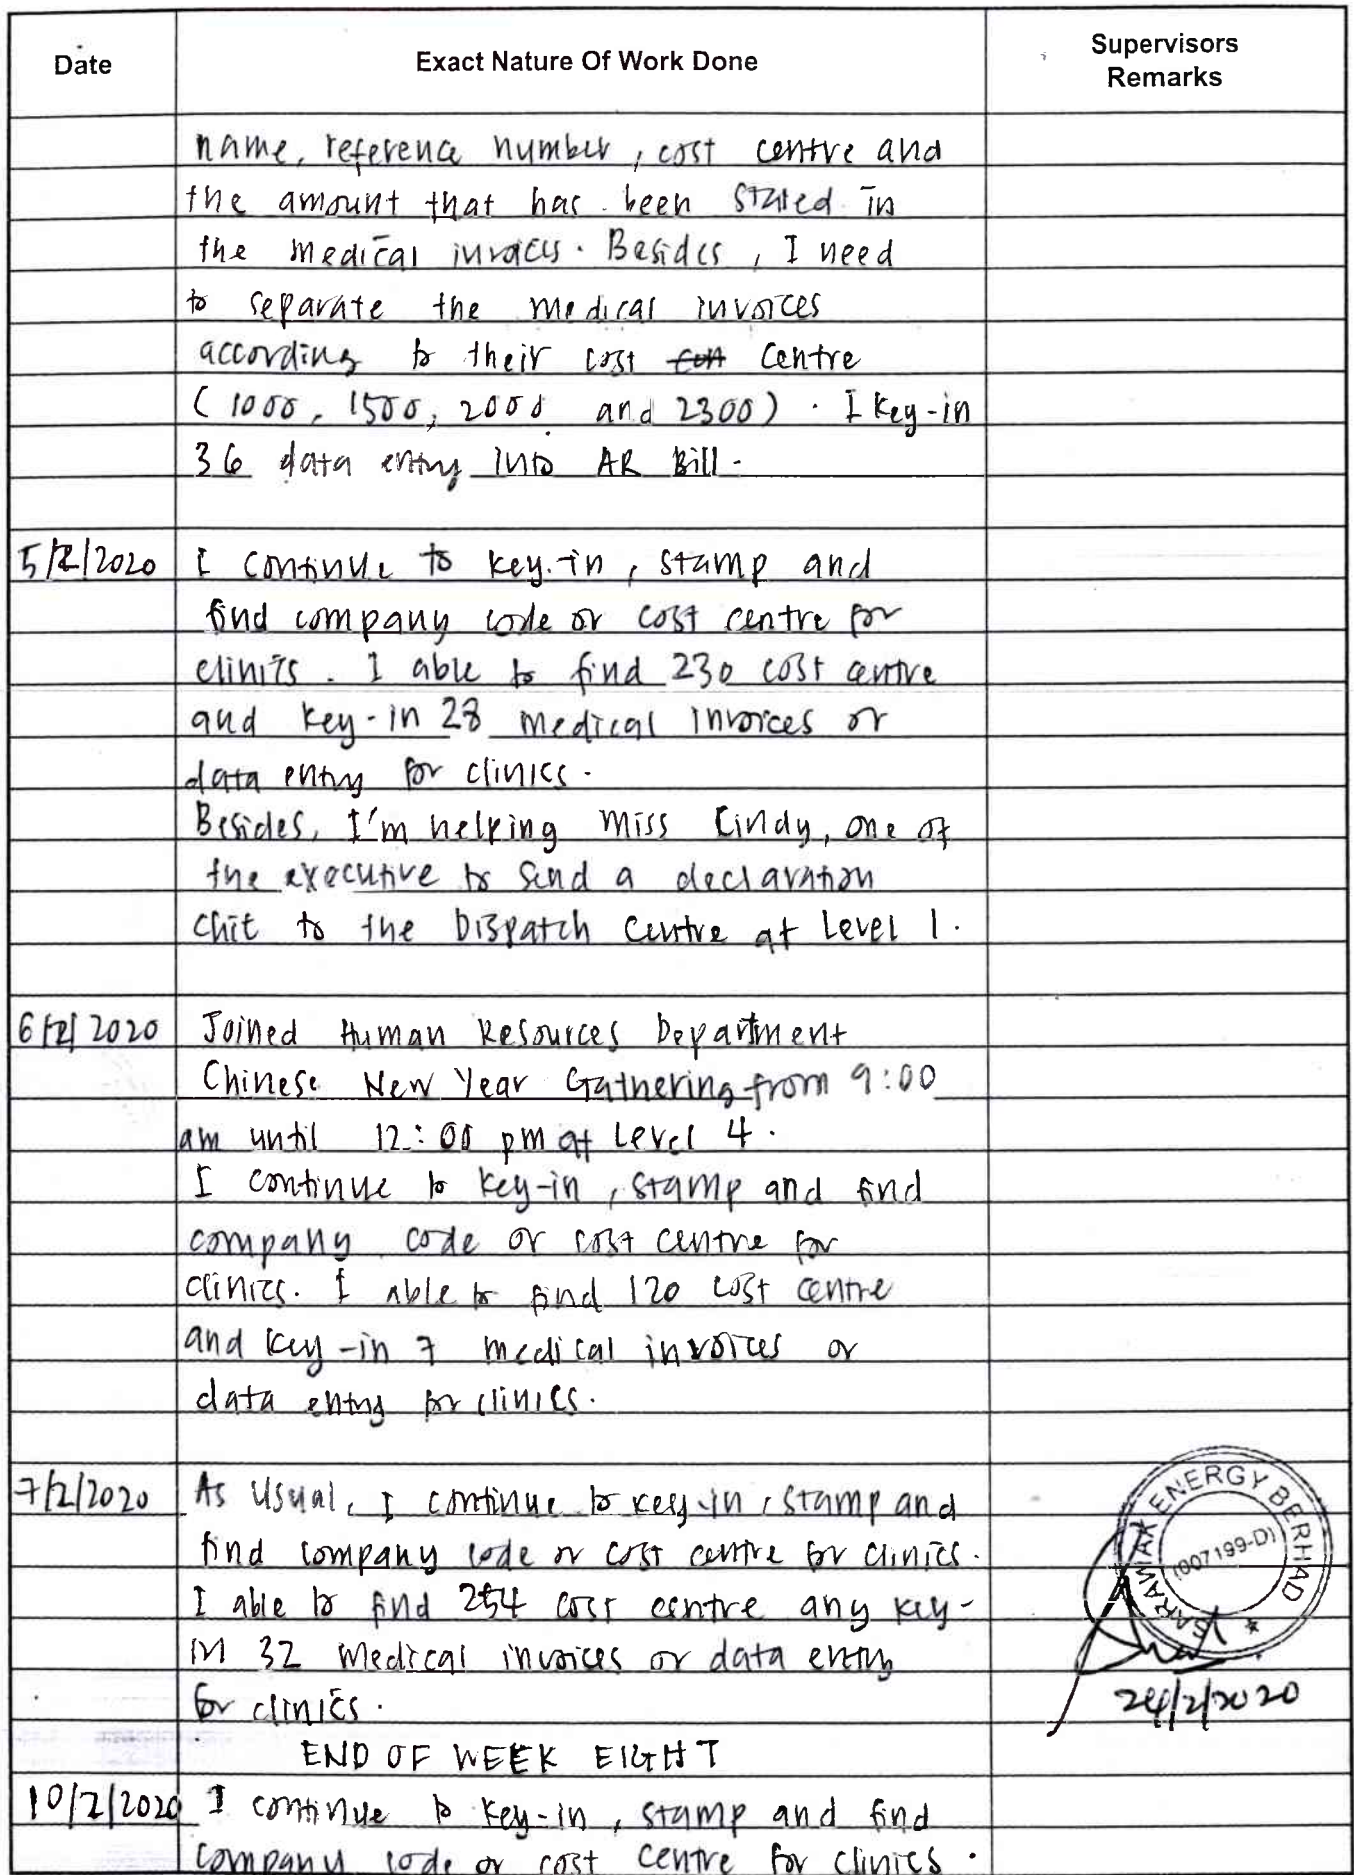 Date Exact Nature Of Work Done Supervisors
Remarks
name, reference number, cost centre and
the amount that has been stated in
the medical invoices. Besides, I need
to separate the medical invoices
according to their cost centre
(1000, 1500, 2000 and 2300). I key-in
36 data entry into AR Bill.
5/2/2020 I continue to key-in, stamp and
find company code or cost centre for
clinics. I able to find 230 cost centre
and key-in 28 medical invoices or
data entry for clinics.
Besides, I'm helping Miss Cindy, one of
the executive to send a declaration
chit to the Dispatch Centre at Level 1.
6/2/2020 Joined Human Resources Department
Chinese New Year Gathering from 9:00
am until 12:00 pm at Level 4.
I continue to key-in, stamp and find
company code or cost centre for
clinics. I able to find 120 cost centre
and key-in 7 medical invoices or
data entry for clinics.
7/2/2020 As usual, I continue to key-in, stamp and
find company code or cost centre for clinics.
I able to find 254 cost centre any key-
in 32 medical invoices or data entry
for clinics.
SARAWAK ENERGY BERHAD
(007199-D)
24/2/2020
END OF WEEK EIGHT
10/2/2020 I continue to key-in, stamp and find
company code or cost centre for clinics.